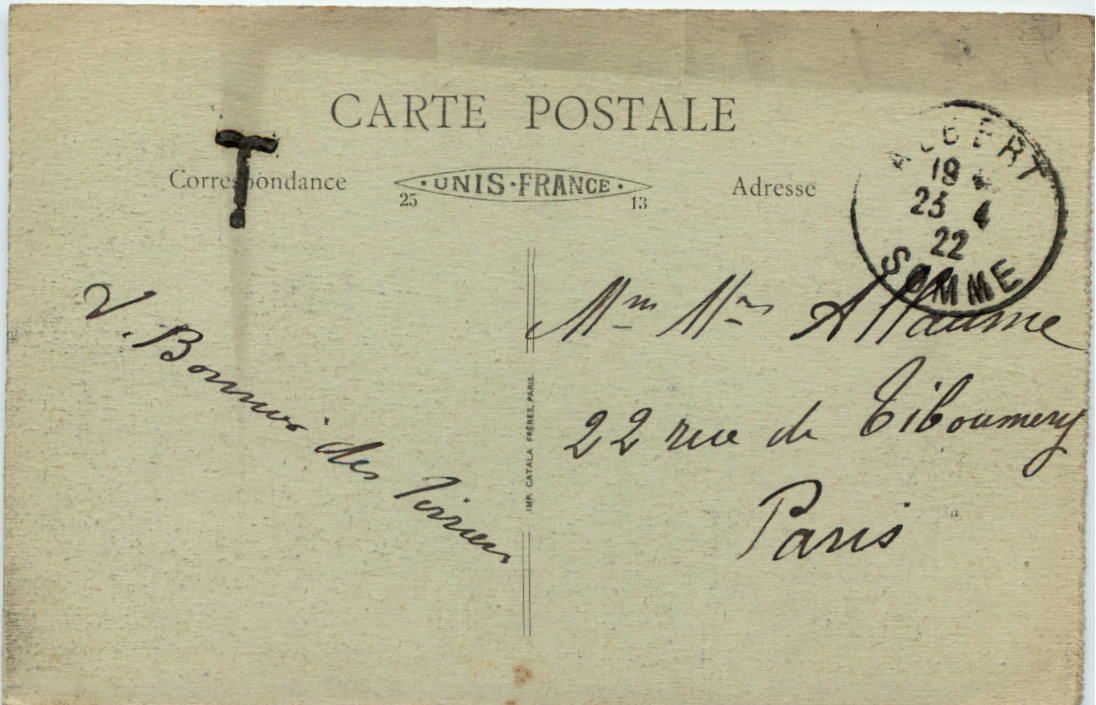 CARTE POSTALE
T
Correspondance
· UNIS · FRANCE ·
25 13
Adresse
ALBERT
19
25 4
22
SOMME
IMP. CATALA FRÈRES, PARIS.
des
Mm Mm Allaume
22 rue de Tiboumery
Paris